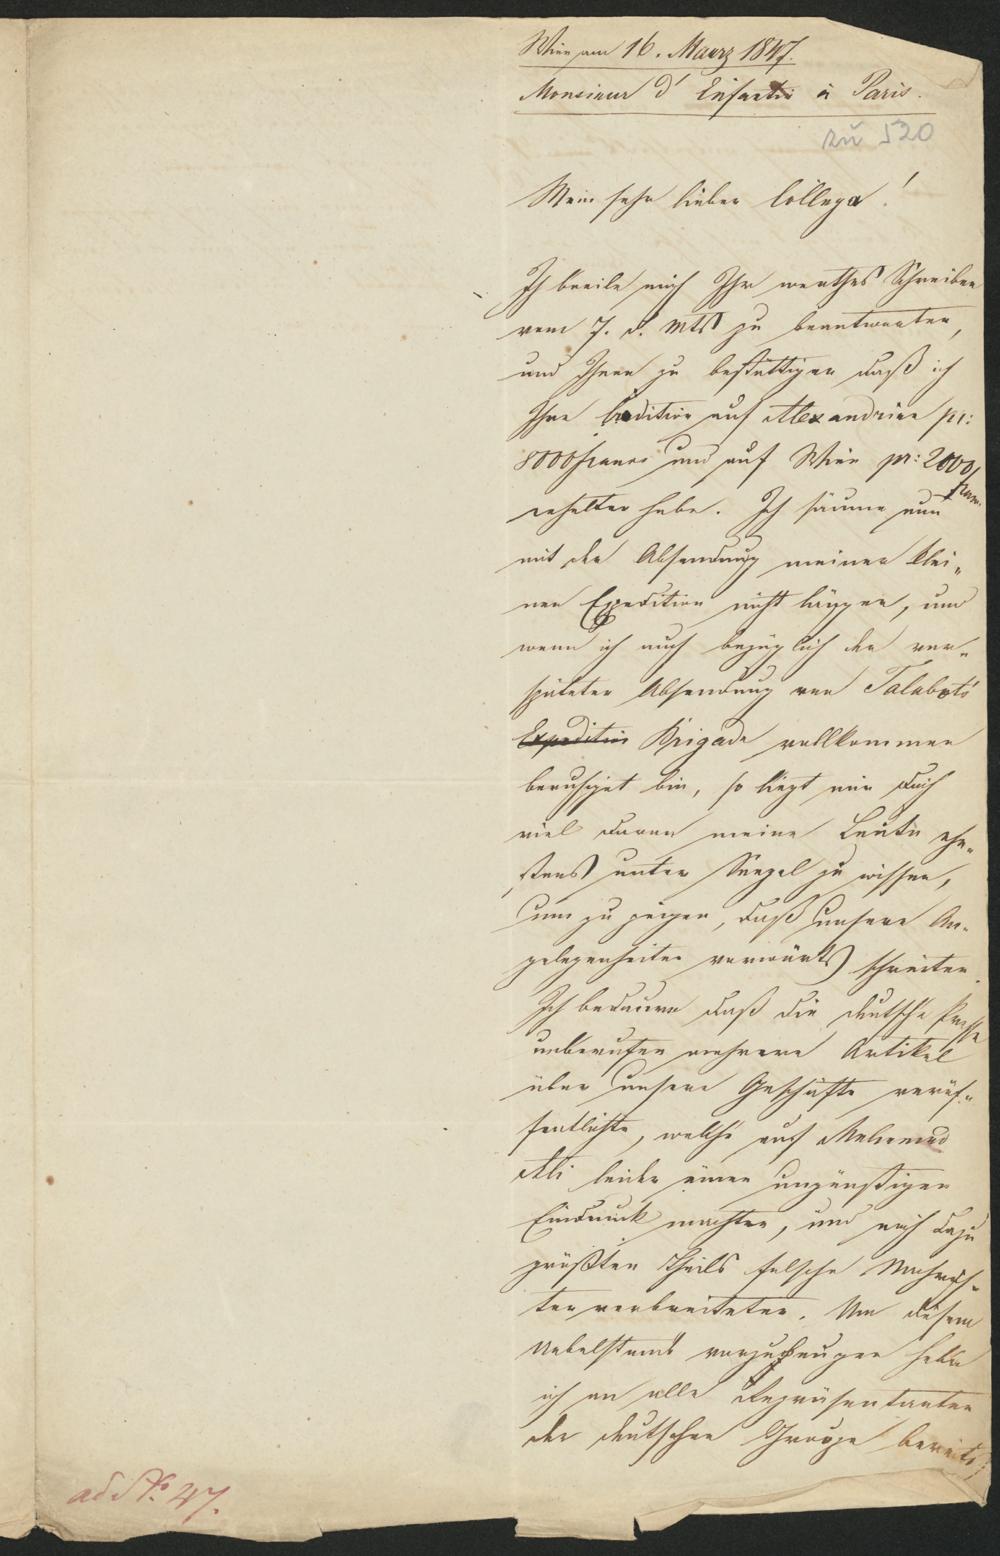 Wien am 16. Maerz 1847.
Monsieur d' Enfantin à Paris.
zu 520
Mein sehr lieber Collega!
Ich beeile mich Ihr werthes Schreiben
vom 7. d. Mts zu beantworten,
und Ihnen zu bestättigen daß ich
Ihre Creditive auf Alexandrien pr:
8000 francs und auf Wien pr: 2000/
franc.
erhalten habe. Ich säume nun
mit der Absendung meiner klei„
nen Expedition nicht länger, und
wenn ich auch bezüglich der ver„
späteten Absendung von Talabots
Expedition Brigade vollkommen
beruhiget bin, so liegt mir doch
viel daran meine Leute ehe„
stens unter Seegel zu wissen,
um zu zeigen, daß unsere An„
gelegenheiten vorwärts schreiten.
Ich bedaure daß die deutsche Presse
unberufen mehrere Artikel
über unsere Geschäfte veröf„
fentlichte, welche auf Mehemed
Ali leider einen ungünstigen
Eindruck machten, und noch dazu
größten Theils falsche Nachrich„
ten verbreiteten. Um diesem
Uebelstand vorzubeugen habe
ich an alle Repräsentanten
der deutschen Groupe bereits
ad No. 47.